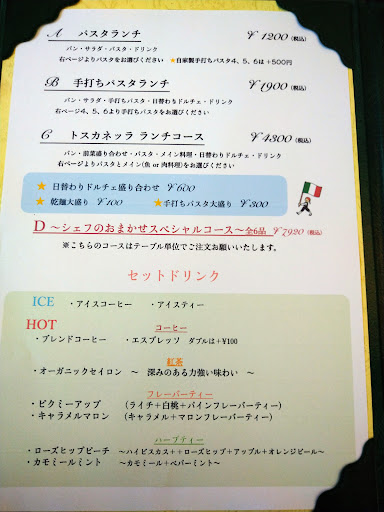 A パスタランチ ￥1200（税込）
パン・サラダ・パスタ・ドリンク
右ページよりパスタをお選びください ★自家製手打ちパスタ4、5、6は＋500円
B 手打ちパスタランチ ￥1900（税込）
パン・サラダ・手打ちパスタ・日替わりドルチェ・ドリンク
右ページ4、5、6より手打ちパスタをお選びください
C トスカネッラ ランチコース ￥4300（税込）
パン・前菜盛り合わせ・パスタ・メイン料理・日替わりドルチェ・ドリンク
右ページよりパスタとメイン(魚 or 肉料理)をお選びください
★ 日替わりドルチェ盛り合わせ ￥600
★ 乾麺大盛り ￥100 ★手打ちパスタ大盛り ￥300
D ～シェフのおまかせスペシャルコース～全6品 ￥7920（税込）
※こちらのコースはテーブル単位でご注文お願いいたします。
セットドリンク
ICE ・アイスコーヒー ・アイスティー
HOT コーヒー
・ブレンドコーヒー ・エスプレッソ ダブルは＋¥100
紅茶
・オーガニックセイロン ～ 深みのある力強い味わい ～
フレーバーティー
・ピクミーアップ （ライチ＋白桃＋パインフレーバーティー）
・キャラメルマロン （キャラメル＋マロンフレーバーティー）
ハーブティー
・ローズヒップピーチ ～ハイビスカス＋＋ローズヒップ＋アップル＋オレンジピール～
・カモミールミント ～カモミール＋ペパーミント～